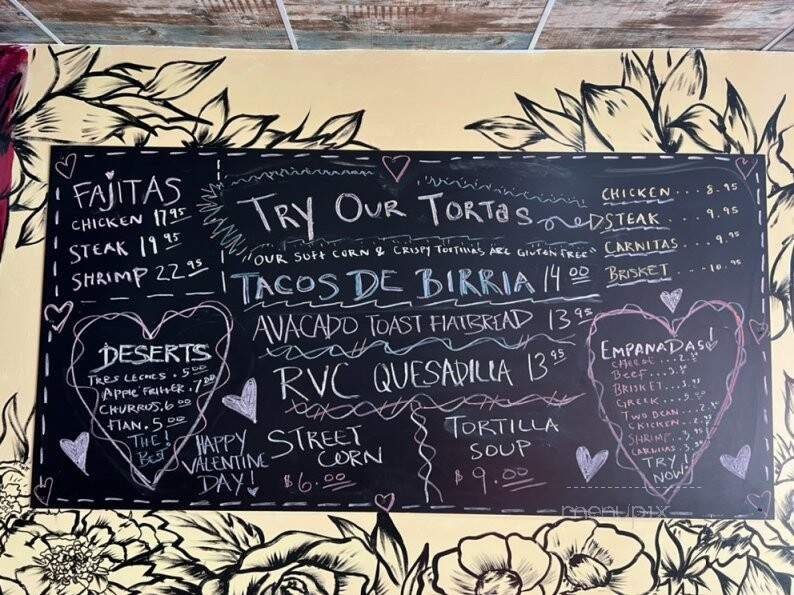 FAJITAS
CHICKEN 17.95
STEAK 19.95
SHRIMP 22.95
TRY OUR TORTAS
CHICKEN ... 8.95
STEAK ... 9.95
CARNITAS ... 9.95
BRISKET .... 10.95
"OUR SOFT CORN & CRISPY TORTILLAS ARE GLUTEN FREE"
TACOS DE BIRRIA 14.00
AVACADO TOAST FLATBREAD 13.95
RVC QUESADILLA 13.95
STREET
CORN
$6.00
TORTILLA
SOUP
$9.00
DESERTS
TRES LECHES . 5.00
APPLE FRITTER . 7.00
CHURROS . 6.00
FLAN . 5.00
THE!
BET
HAPPY
VALENTINE
DAY!
EMPANADAS!
CHEESE
BEEF
BRISKET
GREEK
TWO BEAN
CHICKEN
SHRIMP
CARNITAS
TRY 1
NOW!
menupix